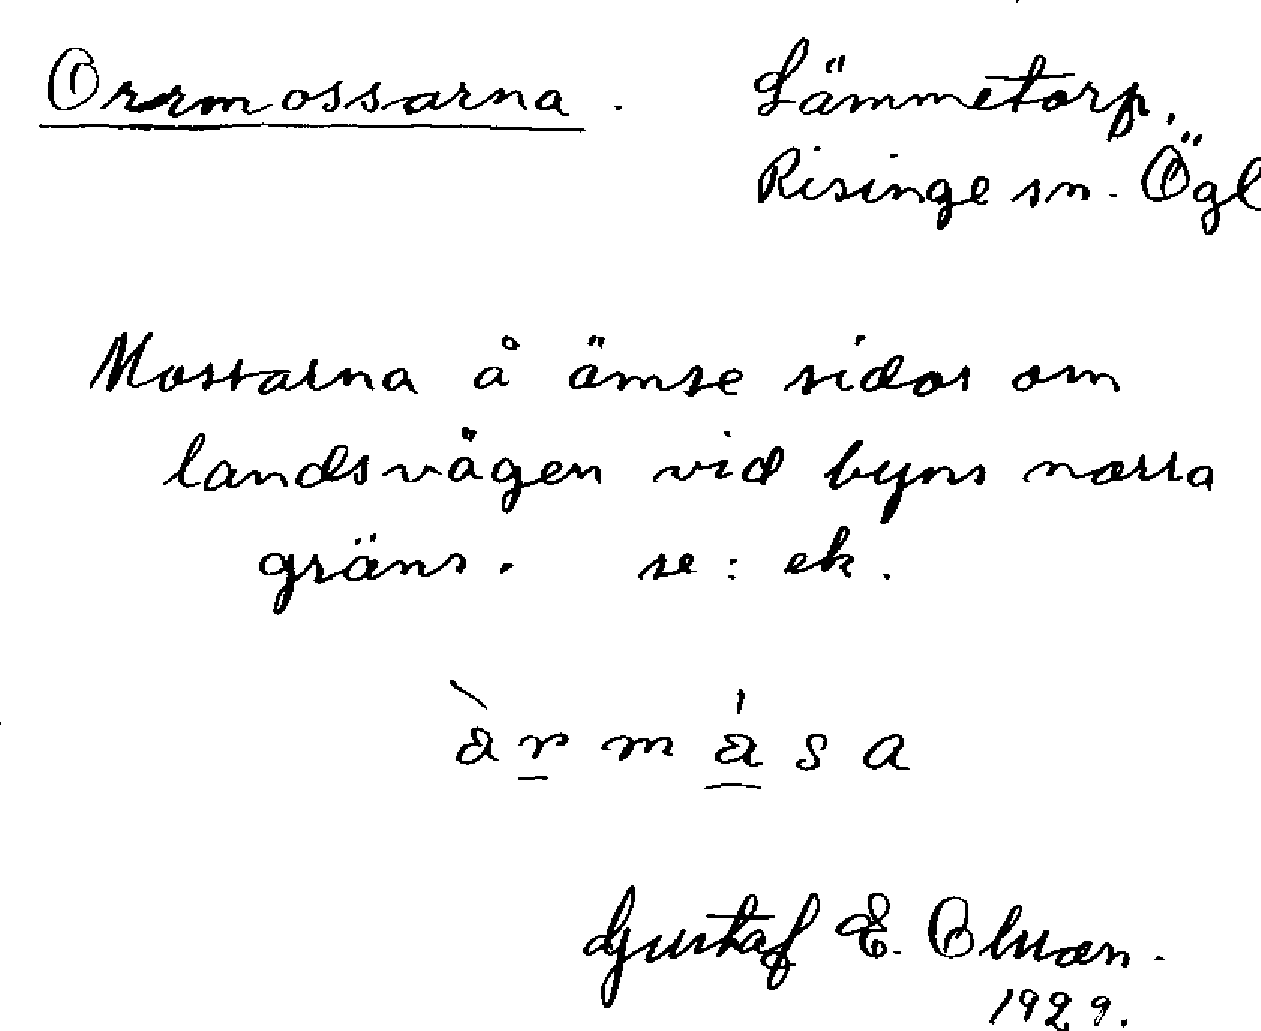 Orrmossarna. Lämmetorp.
Risinge sn. Ögl
Mossarna å ömse sidor om
landsvägen vid byns norra
gräns. se: ek.
Gustaf E. Olsson.
1929.